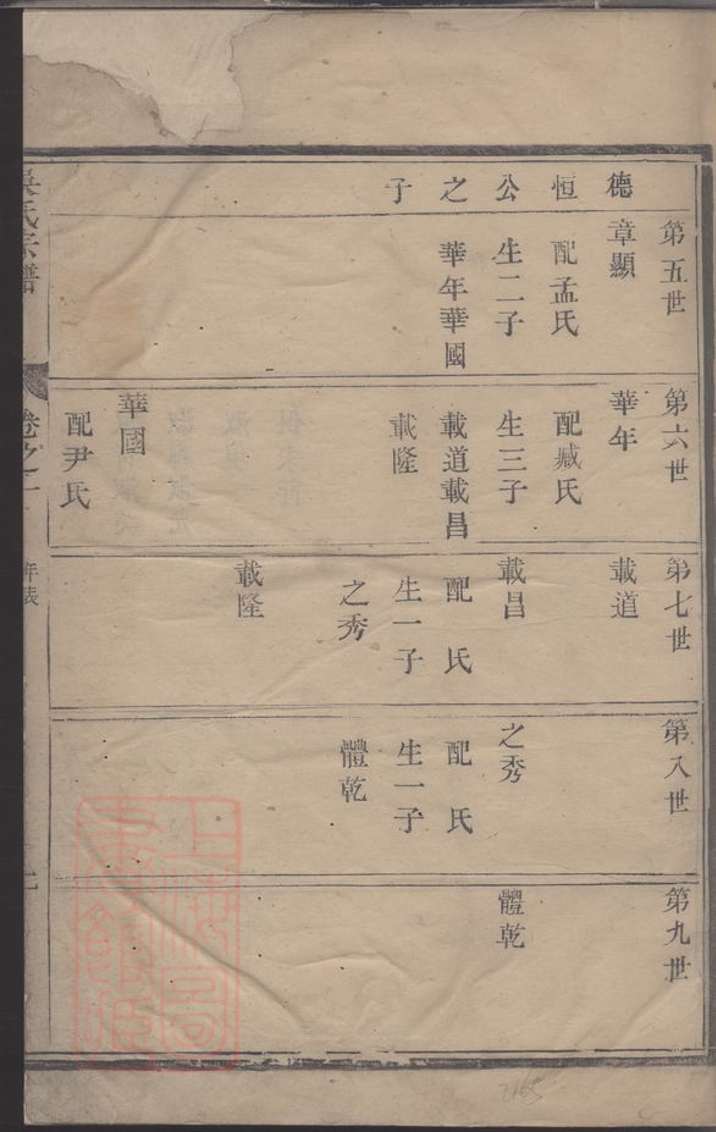 德恒公之子
第五世
章顯
配孟氏
生二子
華年華國
第六世
華年
配臧氏
生三子
載道載昌
載隆
華國
配尹氏
第七世
載道
載昌
配　氏
生一子
之秀
載隆
第八世
之秀
配　氏
生一子
體乾
第九世
體乾
吳氏宗譜
卷之
年表